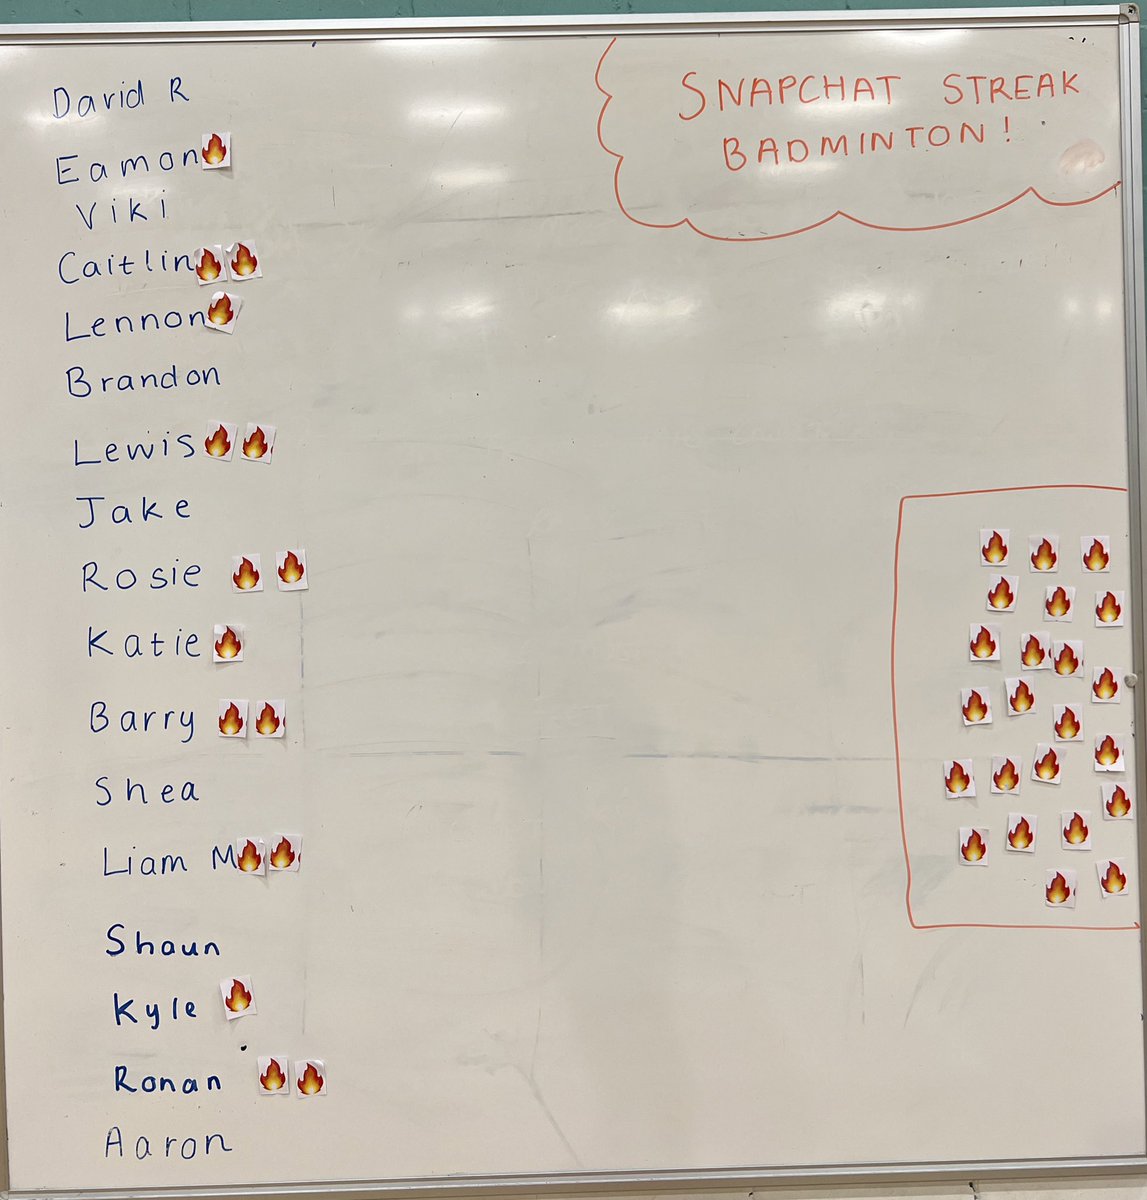 SNAPCHAT STREAK
BADMINTON!
David R
Eamon
Viki
Caitlin
Lennon
Brandon
Lewis
Jake
Rosie
Katie
Barry
Shea
Liam M
Shaun
Kyle
Ronan
Aaron